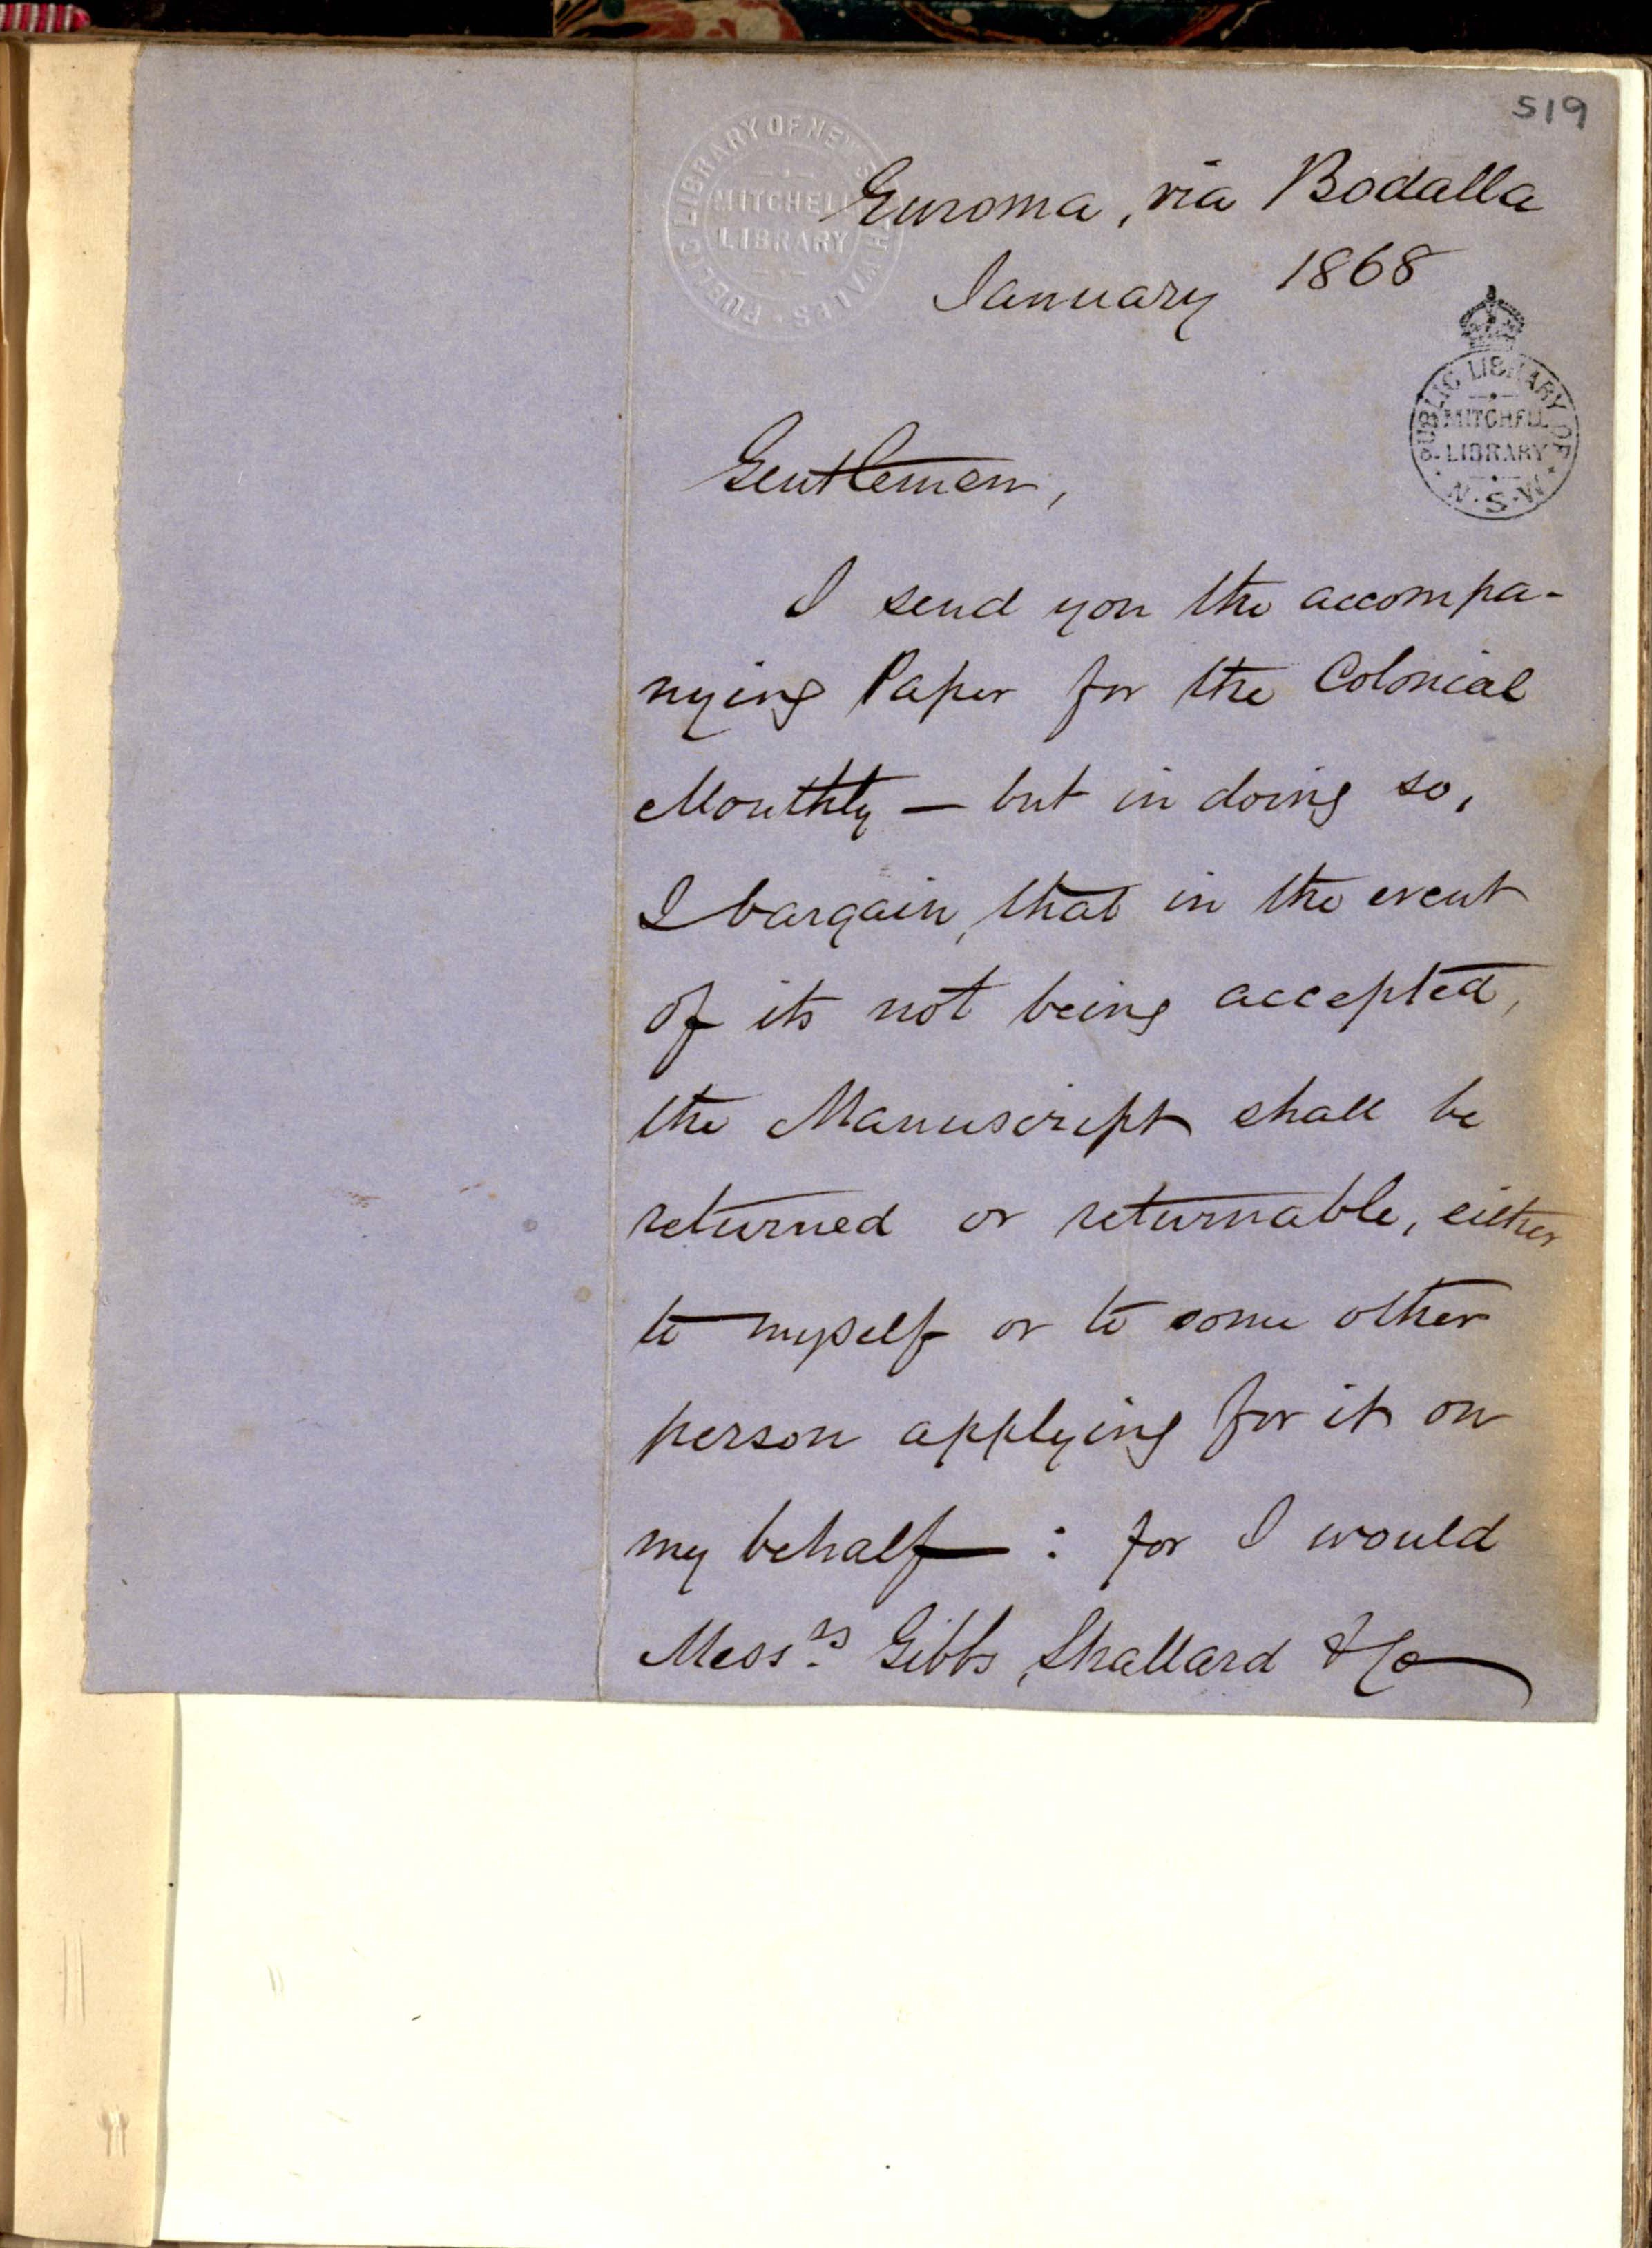 519
PUBLIC LIBRARY OF NEW SOUTH WALES
MITCHELL
LIBRARY
Euroma, via Bodalla
January 1868
PUBLIC LIBRARY OF
MITCHELL
LIBRARY
N.S.W
Gentlemen,
I send you the accompa-
nying Paper for the Colonial
Monthly — but in doing so,
I bargain, that in the event
of its not being accepted,
the Manuscript shall be
returned or returnable, either
to myself or to some other
person applying for it on
my behalf — : for I would
Mess.rs Gibbs, Shallard & Co